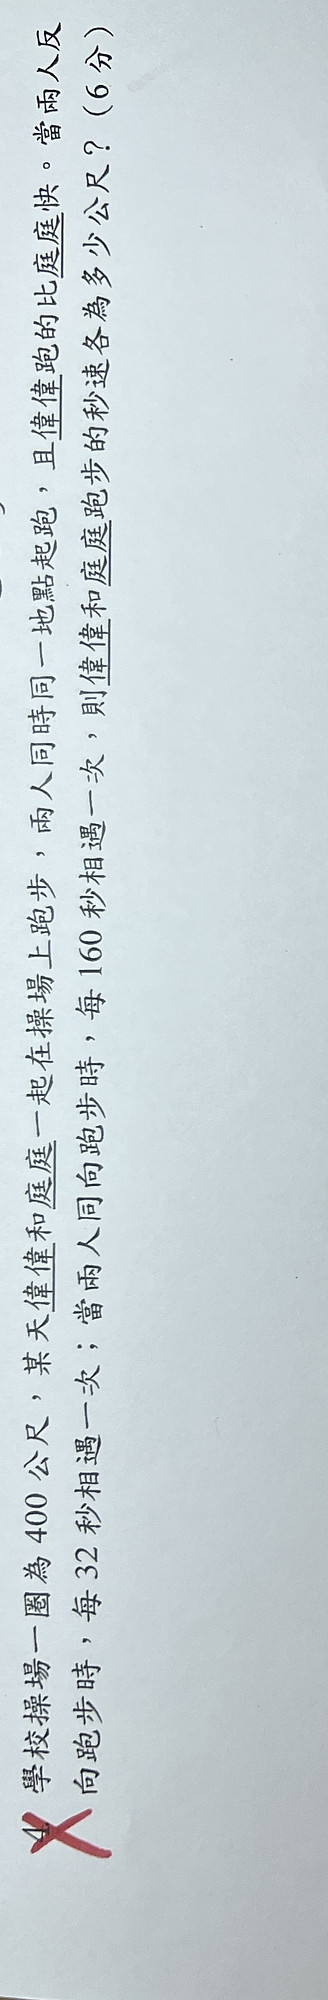 4. 學校操場一圈為 400 公尺，某天偉偉和庭庭一起在操場上跑步，兩人同時同一地點起跑，且偉偉跑的比庭庭快。當兩人反
向跑步時，每 32 秒相遇一次；當兩人同向跑步時，每 160 秒相遇一次，則偉偉和庭庭跑步的秒速各為多少公尺？（6 分）